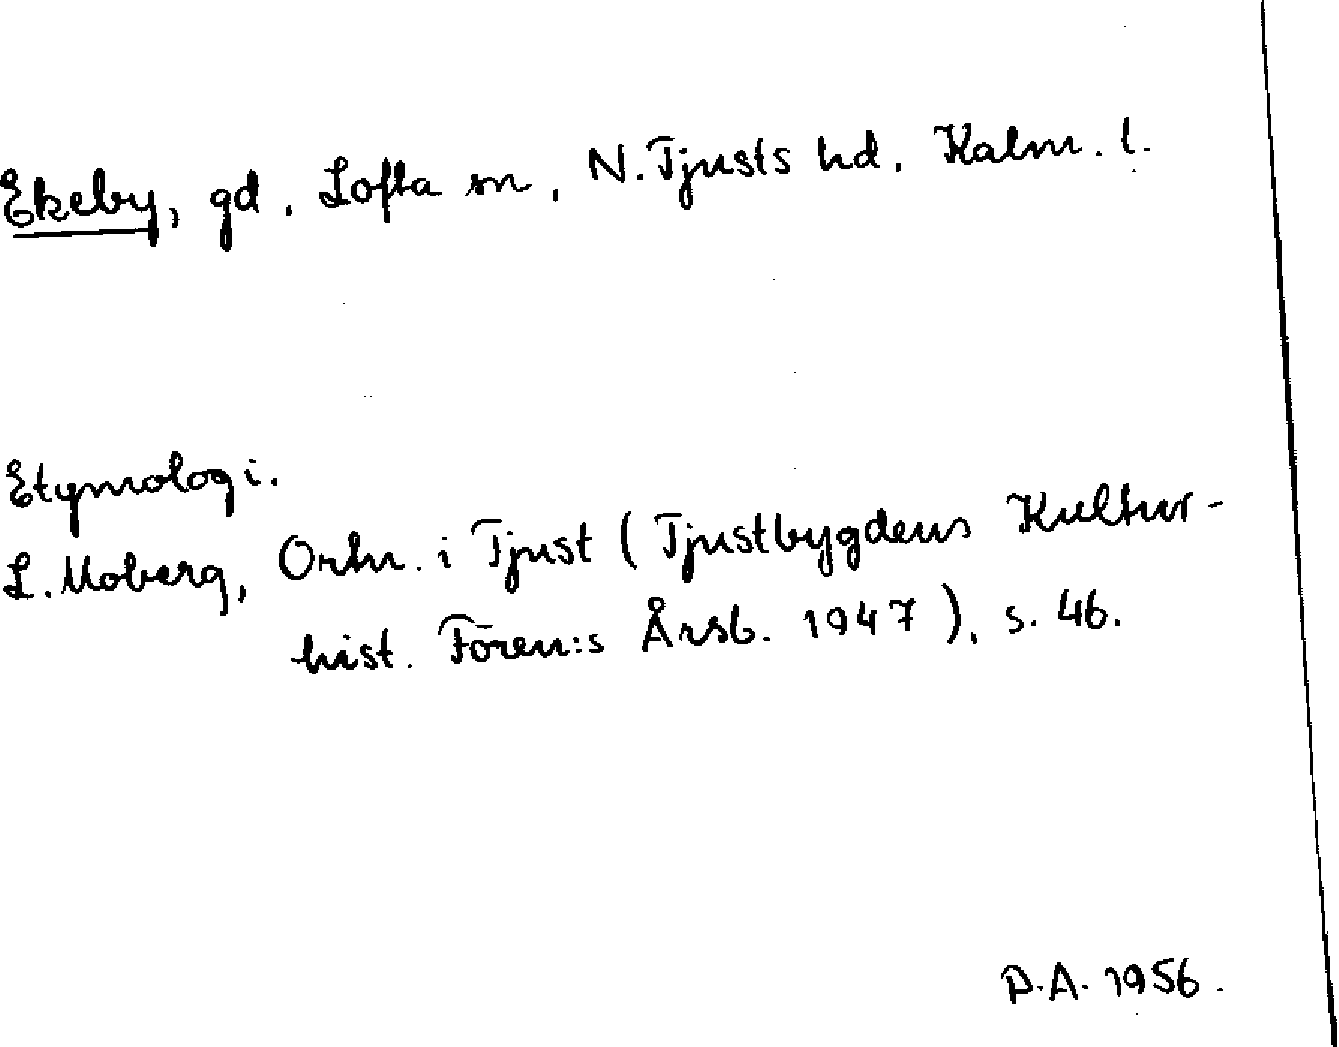 Ekeby, gd, Lofta sn, N. Tjusts hd, Kalm. l.
Etymologi.
L. Moberg, Ortn. i Tjust (Tjustbygdens Kultur-
hist. Fören:s Årsb. 1947), s. 46.
D.A. 1956.